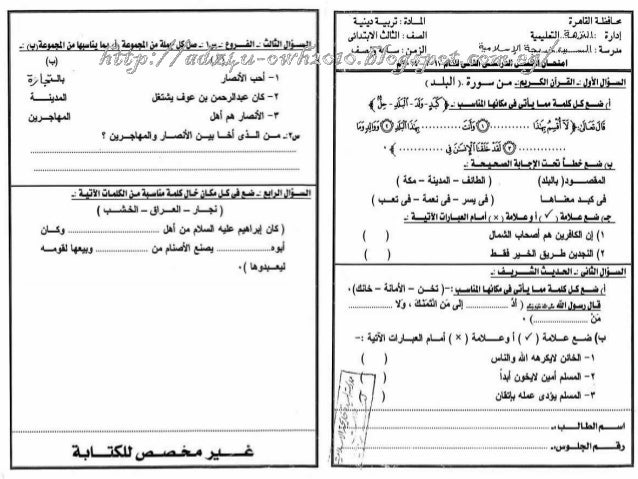 محافظة القاهرة
إدارة : النزهة التعليمية
مدرسة : السيدة خديجة الإسلامية
المادة : تربية دينية
الصف : الثالث الابتدائى
الزمن : ساعة ونصف
http://adwaa-owh2010.blogspot.com
السؤال الأول :ـ القرآن الكريم :ـ من سورة . ( البلد )
أ) ضع كل كلمة مما يأتى فى مكانها المناسب :ـ ﴿ كَبَدٍ - وَلَدَ - الْبَلَدِ - حِلٌّ ﴾
قال تعالى : ﴿ لَا أُقْسِمُ بِهَٰذَا ............ ① وَأَنتَ ............ بِهَٰذَا الْبَلَدِ ② وَوَالِدٍ وَمَا
............ ③ لَقَدْ خَلَقْنَا الْإِنسَانَ فِي ............ ﴾ ٠
ب) ضع خطاً تحت الإجابة الصحيحة :ـ
المقصود ( بالبلد ) ( الطائف - المدينة - مكة )
فى كبد معناها ( فى يسر - فى نعمة - فى تعب )
جـ) ضع علامة ( ✓ ) أو علامة ( × ) أمام العبارات الآتية :ـ
١) إن الكافرين هم أصحاب الشمال ( )
٢) النجدين طريق الخير فقط ( )
السؤال الثانى :ـ الحديث الشريف :ـ
أ) ضع كل كلمة مما يأتى فى مكانها المناسب :ـ ( تخن - الأمانة - خانك ) ٠
قال رسول الله ( أدِّ ............ إلى من ائتمنك ، ولا ............
مَنْ ............ ) ٠
ب) ضع علامة ( ✓ ) أو علامة ( × ) أمام العبارات الآتية :ـ
١- الخائن لايكرهه الله والناس ( )
٢- المسلم أمين لايخون أبداً ( )
٣- المسلم يؤدى عمله بإتقان ( )
اسم الطالب :ـ
رقم الجلوس :ـ
السؤال الثالث :ـ الفروع :ـ س١ :ـ صل كل جملة من المجموعة ( أ ) بما يناسبها من المجموعة (ب) :ـ
(ب)
١- أحب الأنصار بالتجارة
٢- كان عبدالرحمن بن عوف يشتغل المدينة
٣- الأنصار هم أهل المهاجرين
س٢ :ـ من الذى أخا بين الأنصار والمهاجرين ؟
السؤال الرابع :ـ ضع فى كل مكان خال كلمة مناسبة من الكلمات الآتية :ـ
( نجار - العراق - الخشب )
( كان إبراهيم عليه السلام من أهل ............ وكان
أبوه ............ يصنع الأصنام من ............ وبيعها لقومه
ليعبدوها ) ٠
غير مخصص للكتابة